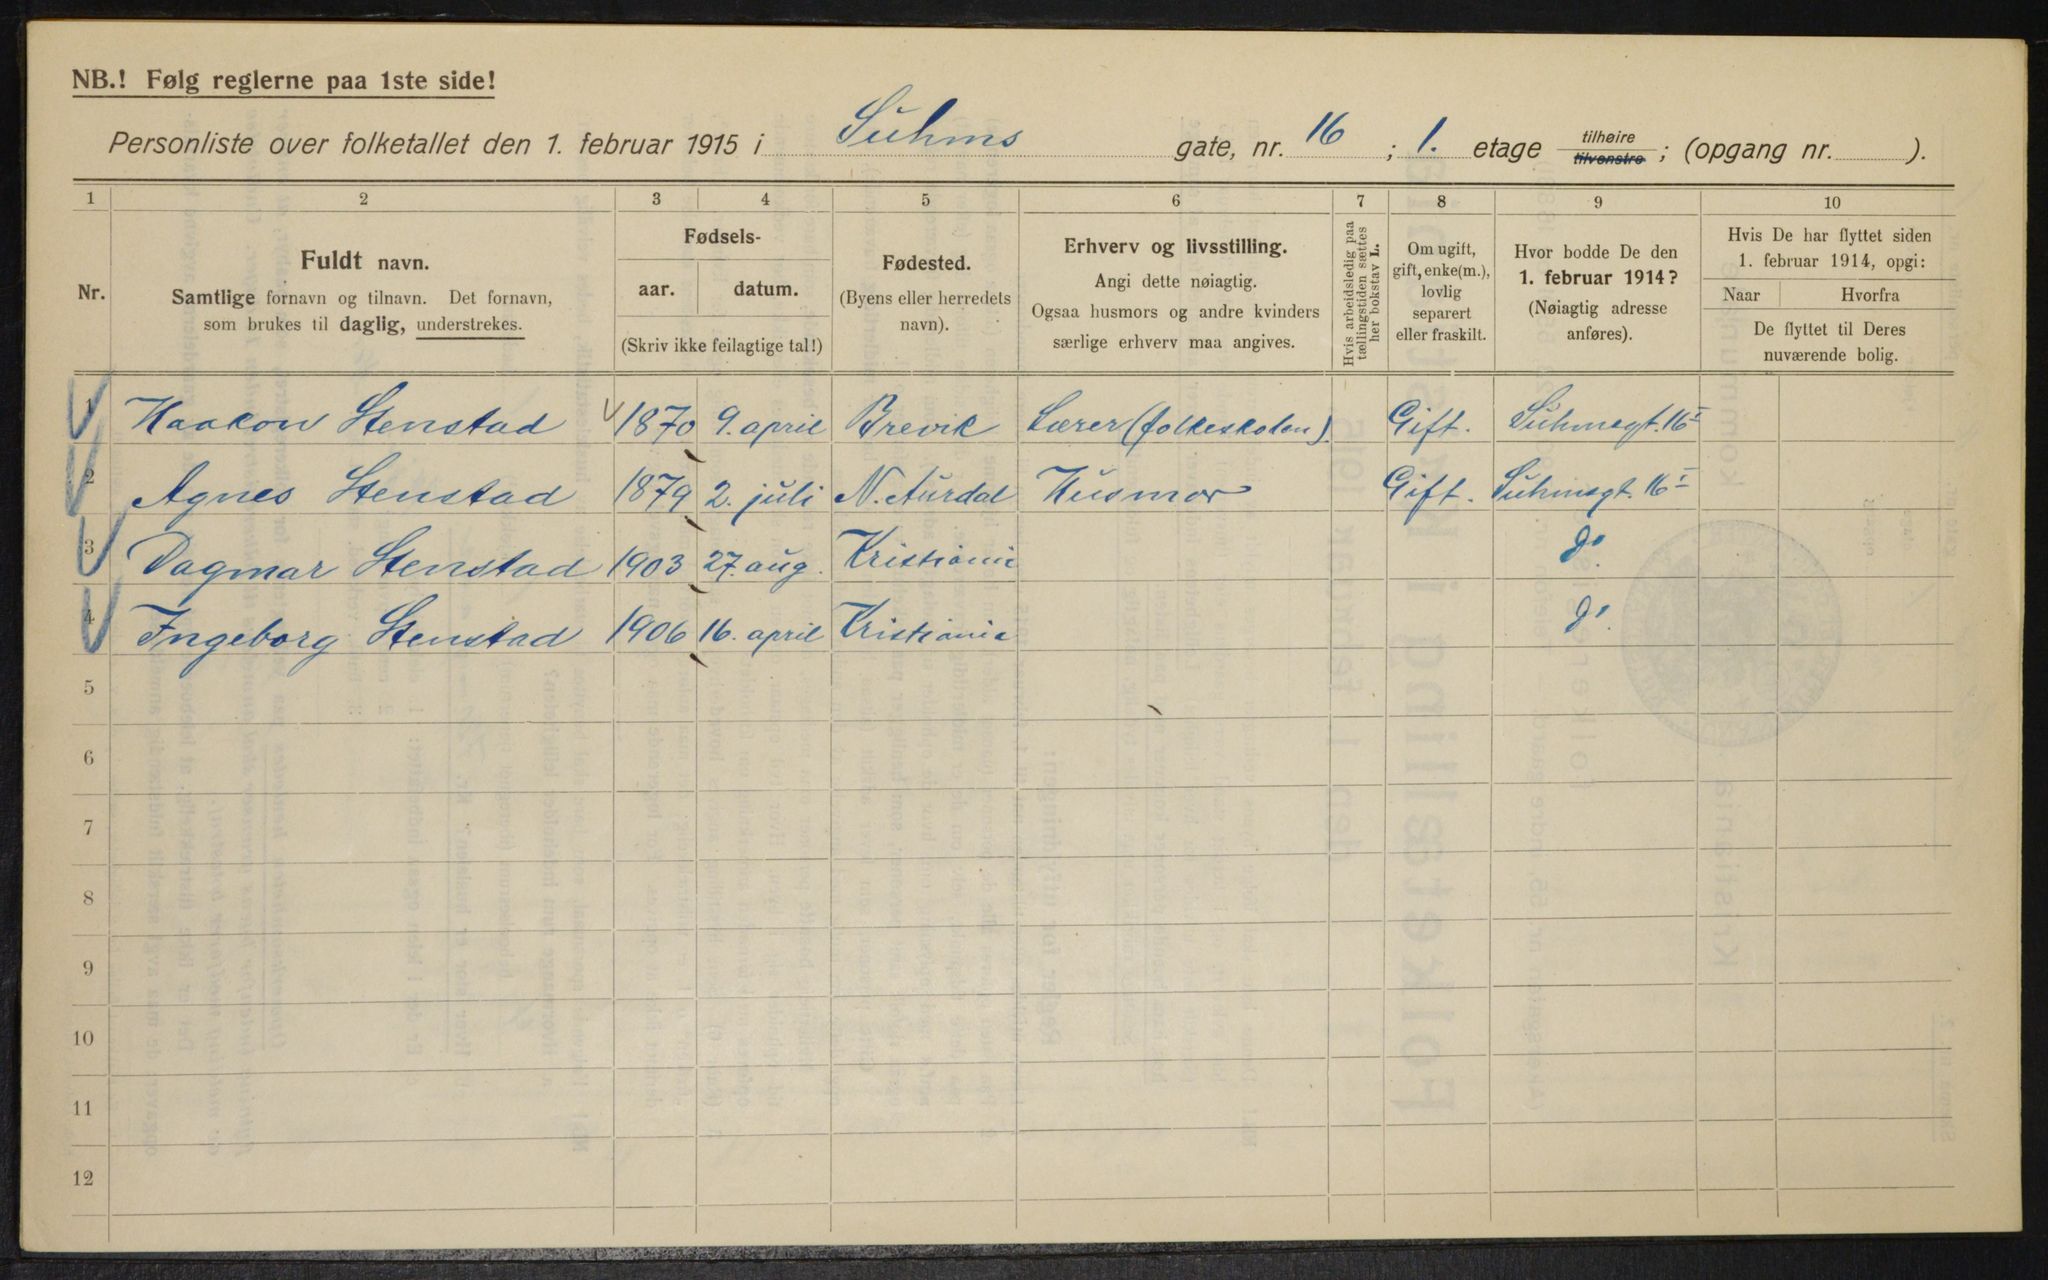 NB.! Følg reglerne paa 1ste side!
Personliste over folketallet den 1. februar 1915 i Suhms gate, nr. 16 ; 1. etage tilhøire tilvenstre ; (opgang nr. ).
1 2 3 4 5 6 7 8 9 10
Nr.
Fuldt navn.
Samtlige fornavn og tilnavn. Det fornavn,
som brukes til daglig, understrekes.
Fødsels-
aar. datum.
(Skriv ikke feilagtige tal!)
Fødested.
(Byens eller herredets
navn).
Erhverv og livsstilling.
Angi dette nøiagtig.
Ogsaa husmors og andre kvinders
særlige erhverv maa angives.
Hvis arbeidsledig paa
tællingstiden sættes
her bokstav L.
Om ugift,
gift, enke(m.),
lovlig
separert
eller fraskilt.
Hvor bodde De den
1. februar 1914?
(Nøiagtig adresse
anføres).
Hvis De har flyttet siden
1. februar 1914, opgi:
Naar Hvorfra
De flyttet til Deres
nuværende bolig.
1 Haakon Stenstad 1870 9. april Brevik Lærer (folkeskolen). Gift. Suhmsgt. 16 I
2 Agnes Stenstad 1879 2. juli N. Aurdal Husmor Gift. Suhmsgt. 16 I
3 Dagmar Stenstad 1903 27. aug. Kristiania do.
4 Ingeborg Stenstad 1906 16. april Kristiania do.
5
6
7
8
9
10
11
12